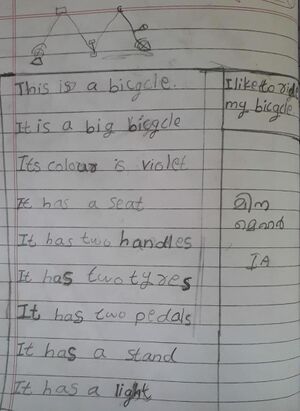 This is a bicycle.
It is a big bicycle
Its colour is violet
It has a seat
It has two handles
It has two tyres
It has two pedals
It has a stand
It has a light
I like to ride
my bicycle
മിന
IA